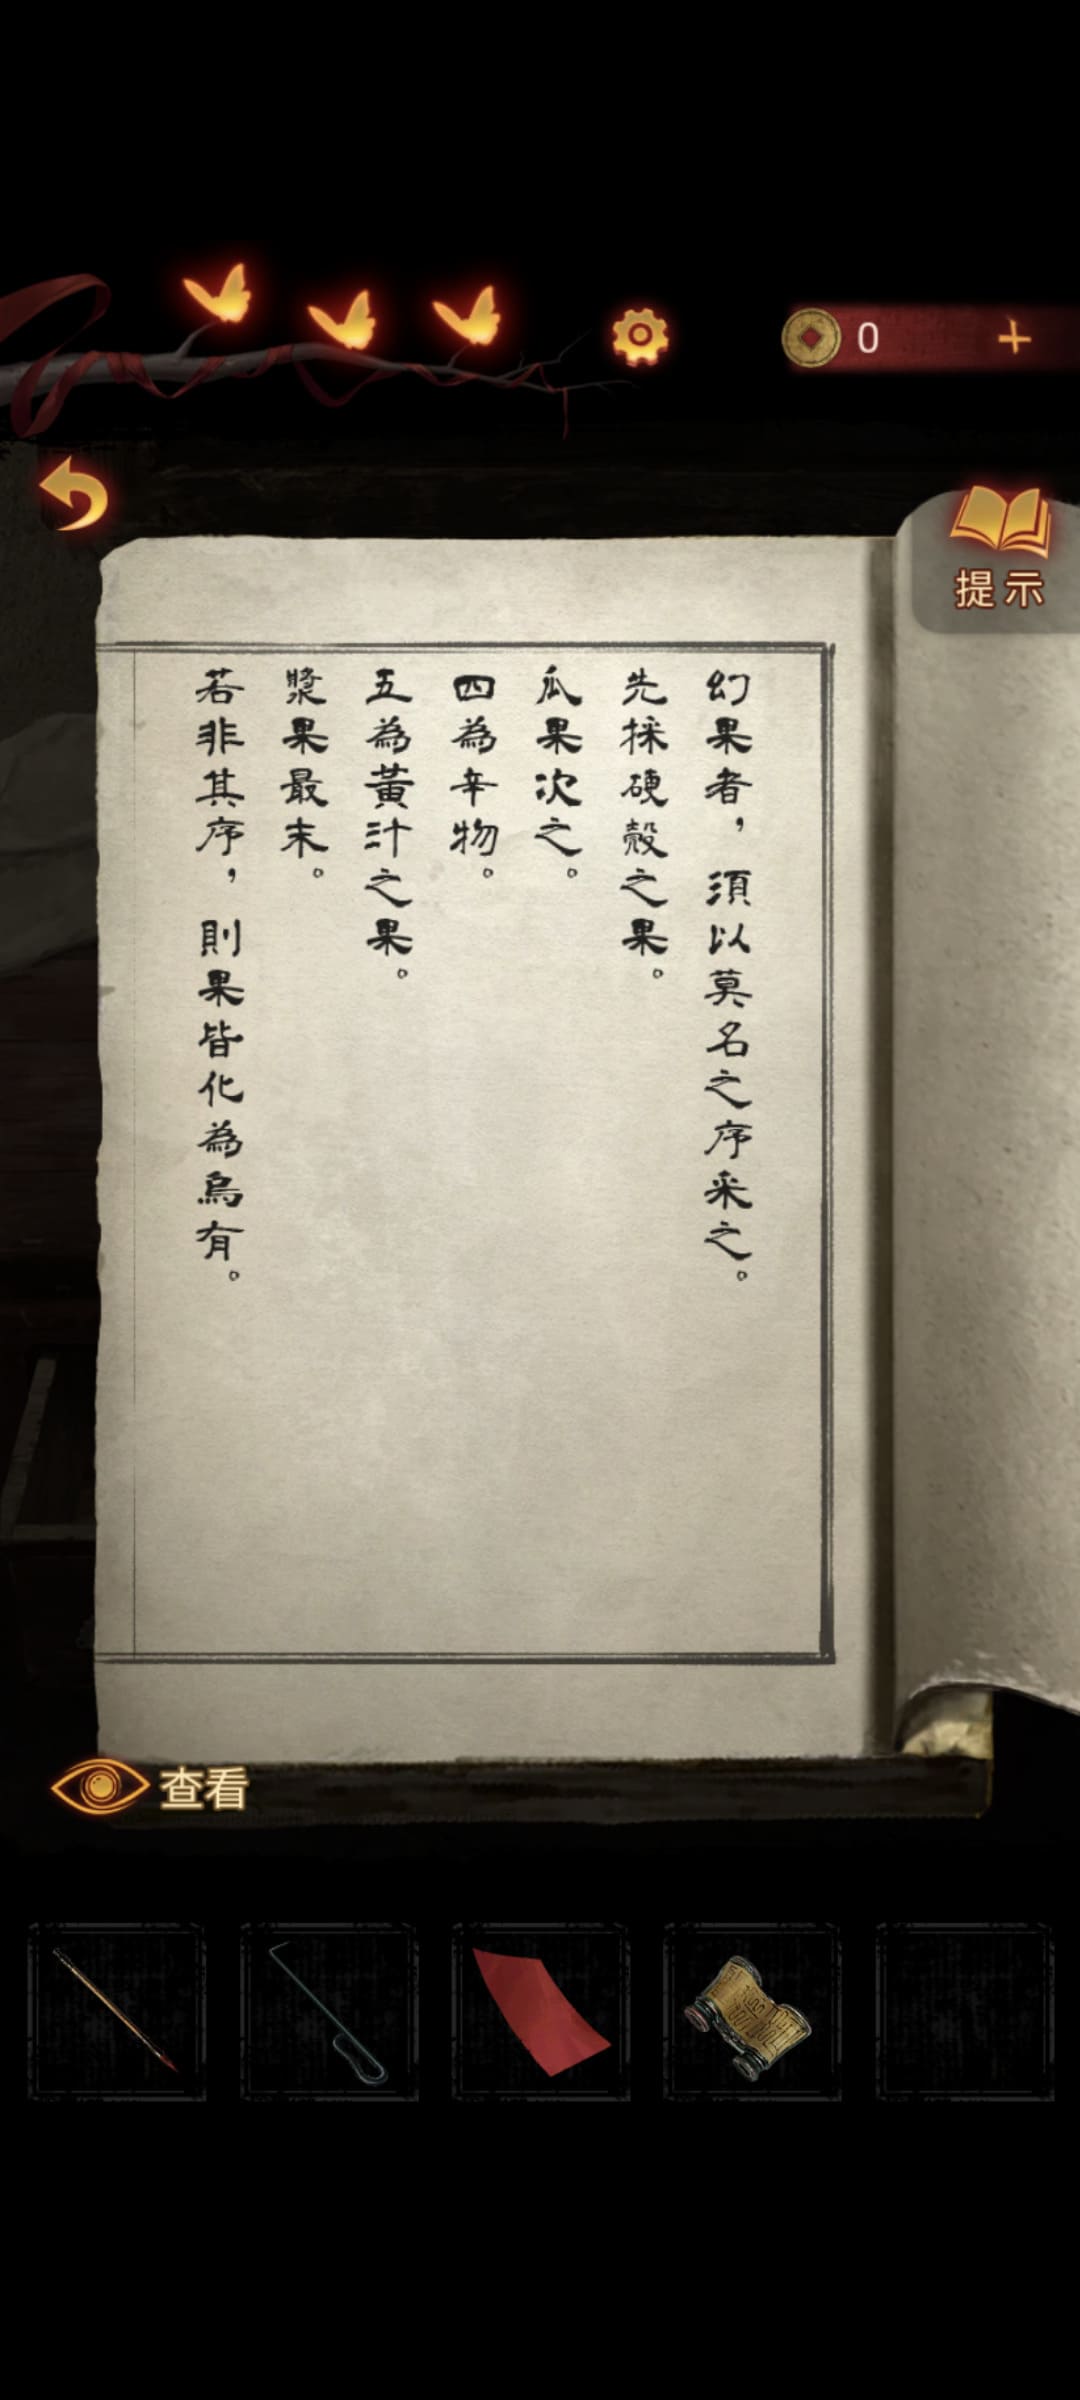 0
提示
幻果者，須以莫名之序采之。
先採硬殼之果。
瓜果次之。
四為辛物。
五為黃汁之果。
漿果最末。
若非其序，則果皆化為烏有。
查看